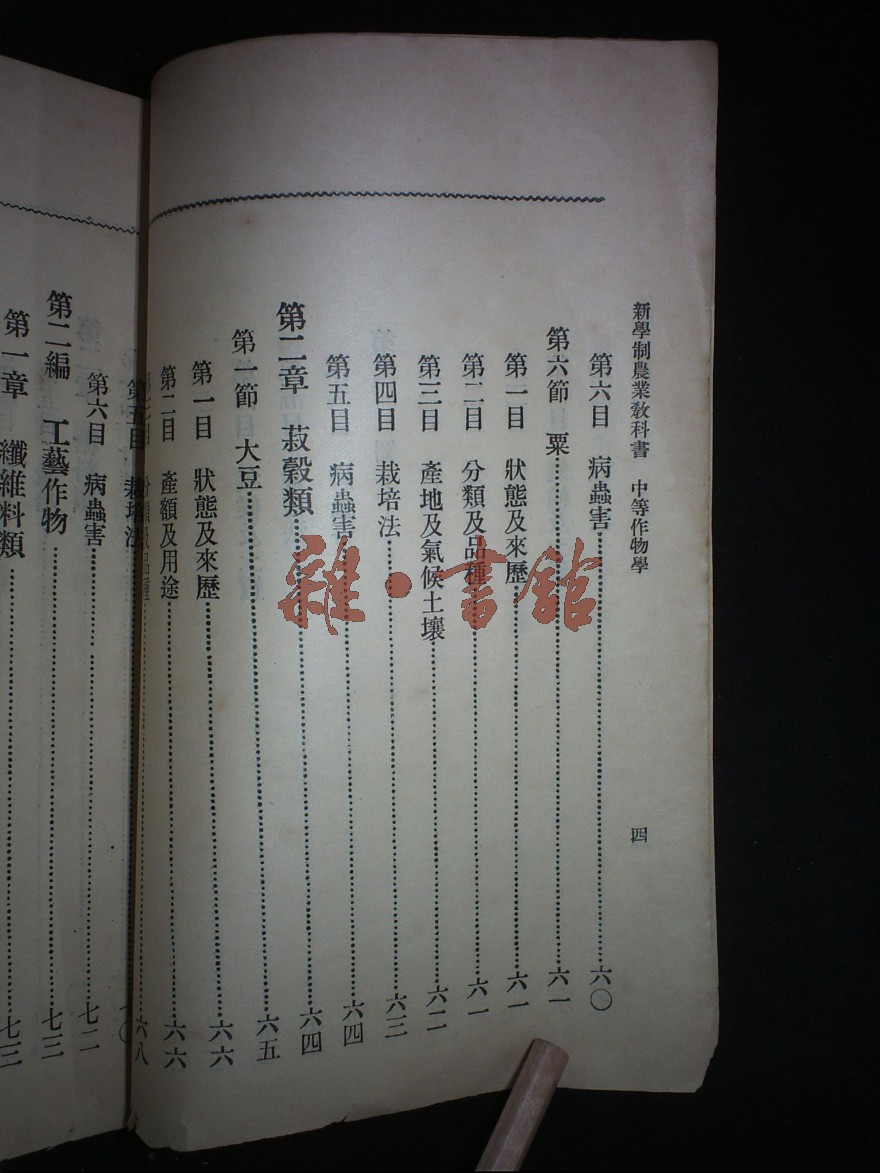 新學制農業教科書 中等作物學 四
第六目 病蟲害 六〇
第六節 粟 六一
第一目 狀態及來歷 六一
第二目 分類及品種 六一
第三目 產地及氣候土壤 六二
第四目 栽培法 六三
第五目 病蟲害 六四
第二章 菽穀類 六四
第一節 大豆 六五
第一目 狀態及來歷 六六
第二目 產額及用途 六六
分類及品種 六八
第五目 栽培法
第六目 病蟲害 七二
第二編 工藝作物 七三
第一章 纖維料類 七三
雜·書館